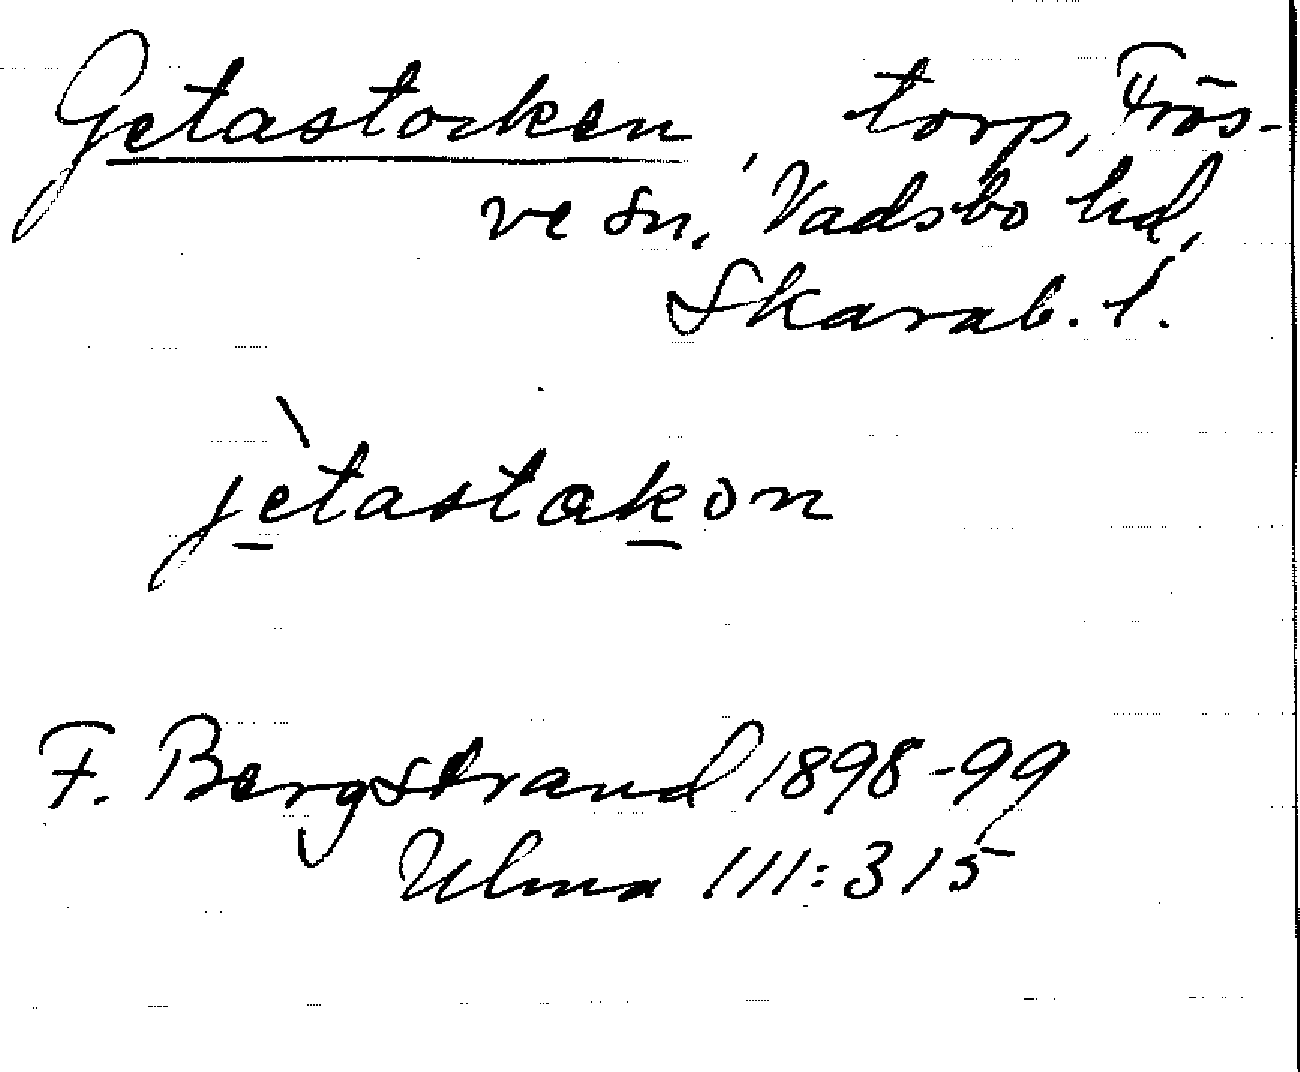 Getastocken, torp, Frös-
ve sn, Vadsbo hd,
Skarab. l.
jètastakon
F. Bergstrand 1898-99
Ulma 111:315